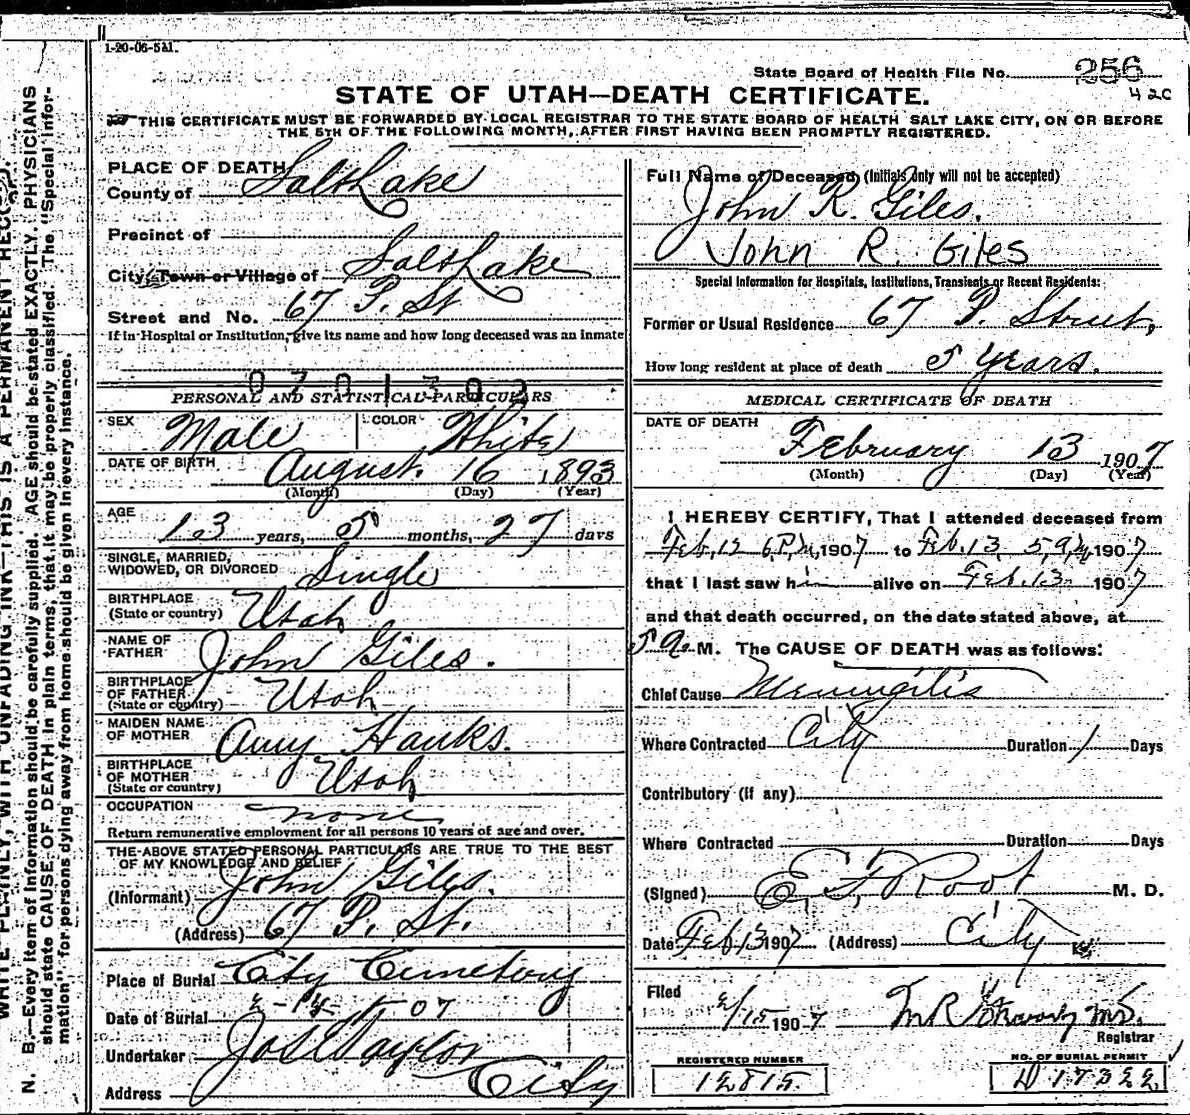 1-20-06-5M.
State Board of Health File No. 256
420
STATE OF UTAH—DEATH CERTIFICATE.
THIS CERTIFICATE MUST BE FORWARDED BY LOCAL REGISTRAR TO THE STATE BOARD OF HEALTH SALT LAKE CITY, ON OR BEFORE
THE 5TH OF THE FOLLOWING MONTH, AFTER FIRST HAVING BEEN PROMPTLY REGISTERED.
PLACE OF DEATH
County of Salt Lake
Precinct of
City, Town or Village of Salt Lake
Street and No. 67 P. St
If in Hospital or Institution, give its name and how long deceased was an inmate
0701302
PERSONAL AND STATISTICAL PARTICULARS
SEX Male COLOR White
DATE OF BIRTH August 16 1893
(Month) (Day) (Year)
AGE 13 years, 5 months, 27 days
SINGLE, MARRIED,
WIDOWED, OR DIVORCED Single
BIRTHPLACE
(State or country) Utah
NAME OF
FATHER John Giles.
BIRTHPLACE
OF FATHER
(State or country) Utah
MAIDEN NAME
OF MOTHER Amy Hanks.
BIRTHPLACE
OF MOTHER
(State or country) Utah
OCCUPATION none
Return remunerative employment for all persons 10 years of age and over.
THE ABOVE STATED PERSONAL PARTICULARS ARE TRUE TO THE BEST
OF MY KNOWLEDGE AND BELIEF
(Informant) John Giles.
(Address) 67 P. St.
Place of Burial City Cemetery
Date of Burial 07
Undertaker Jos Taylor
Address City
Full Name of Deceased (Initials only will not be accepted)
John R. Giles.
John R. Giles
Special Information for Hospitals, Institutions, Transients or Recent Residents:
Former or Usual Residence 67 P. Street,
How long resident at place of death 5 years.
MEDICAL CERTIFICATE OF DEATH
DATE OF DEATH
February 13 1907
(Month) (Day) (Year)
I HEREBY CERTIFY, That I attended deceased from
Feb, 12 6 P.M, 1907 to Feb. 13, 5, a, M 1907
that I last saw him alive on Feb. 13 1907
and that death occurred, on the date stated above, at
5 a. M. The CAUSE OF DEATH was as follows:
Chief Cause Meningitis
Where Contracted City Duration 1 Days
Contributory (if any)
Where Contracted Duration Days
(Signed) E. F. Root M. D.
Date Feb 13 1907 (Address) City
Filed
2/15 1907 M.D.
Registrar
REGISTERED NUMBER
12815.
NO. OF BURIAL PERMIT
D 17322
WRITE PLAINLY, WITH UNFADING INK—THIS IS A PERMANENT RECORD.
N. B.—Every item of information should be carefully supplied. AGE should be stated EXACTLY. PHYSICIANS
should state CAUSE OF DEATH in plain terms, that it may be properly classified. The "Special Infor-
mation" for persons dying away from home should be given in every instance.